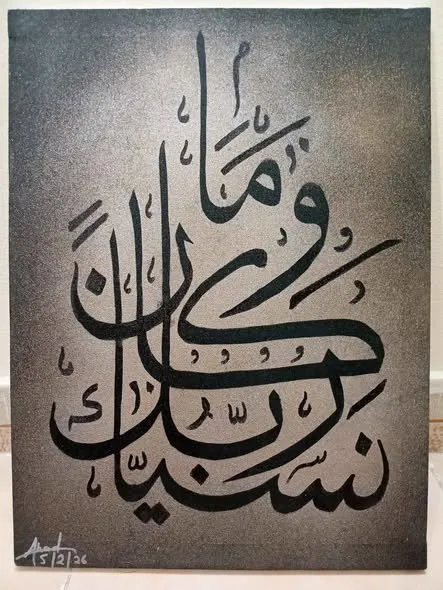 وَمَا كَانَ رَبُّكَ نَسِيًّا
5/2/26